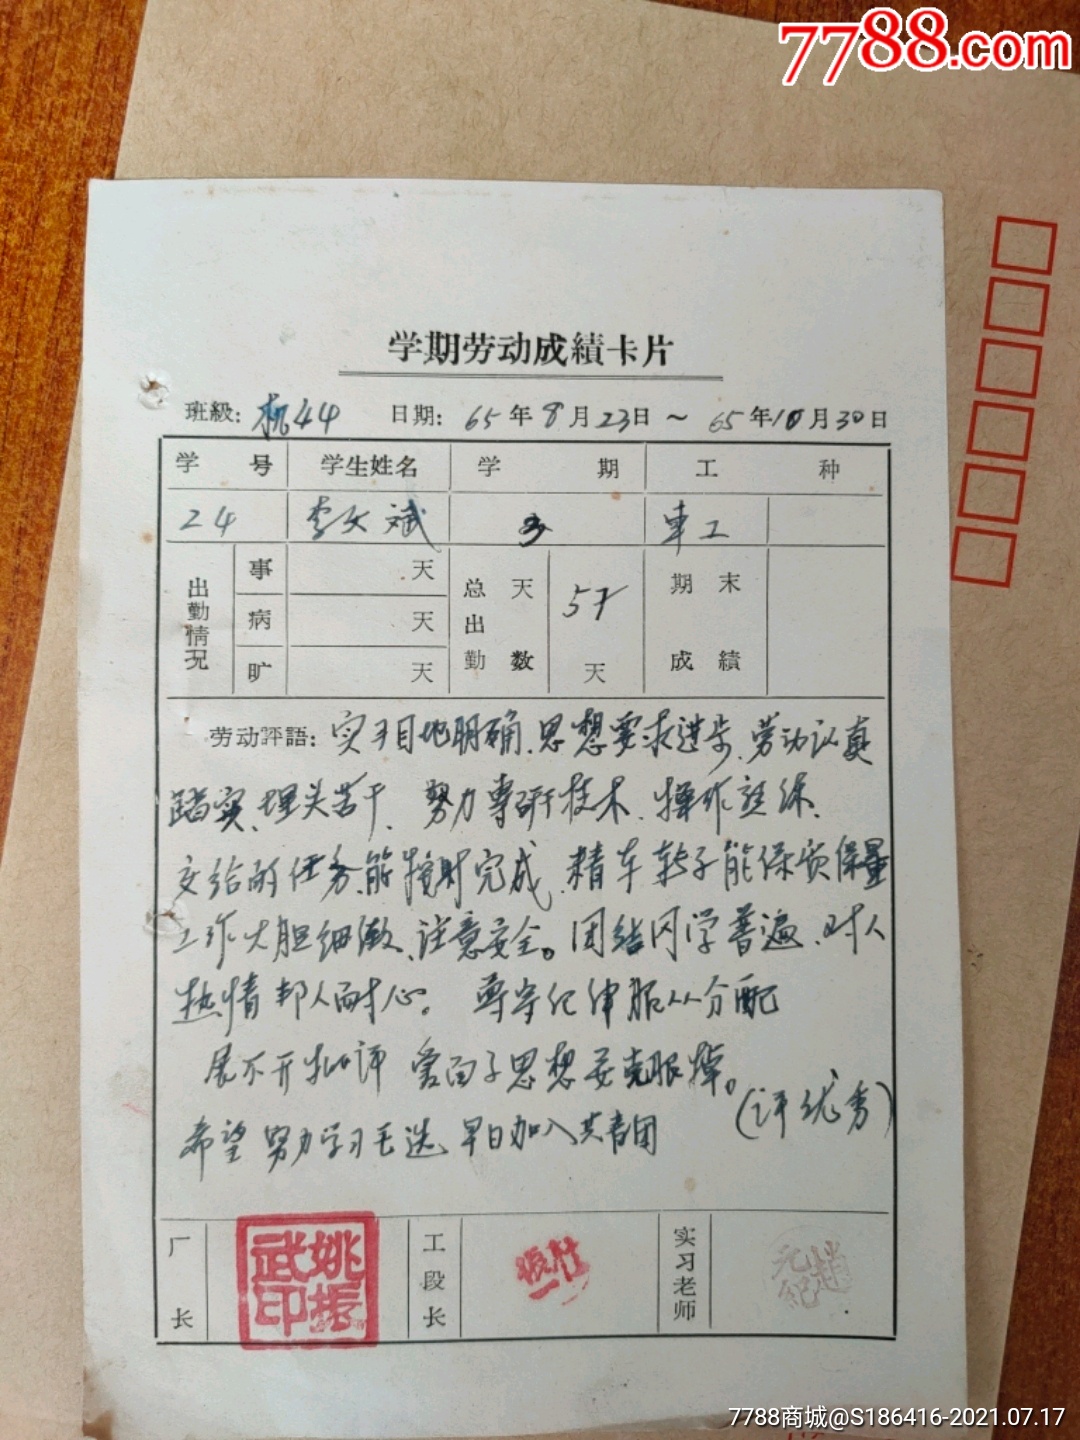 7788.com
学期劳动成績卡片
班級: 机44 日期: 65年8月23日～65年10月30日
学号 学生姓名 学期 工种
24 李文斌 3 車工
出勤情况 事 天 病 天 旷 天 总出勤天数 57 天 期末成績
劳动評語: 实习目地明确、思想要求进步、劳动认真
踏实、埋头苦干、努力専研技术、操作熟练、
交给的任务、能按时完成、精车转子能保质保量
工作大胆细澈、注意安全。团结同学普遍、对人
热情邦人耐心。尊守纪律服从分配
展不开批评 爱面子思想要克服掉。
(评优秀)
希望努力学习毛选 早日加入共青团
厂长 姚振武印 工段长 实习老师 趙元紀
7788商城@S186416-2021.07.17